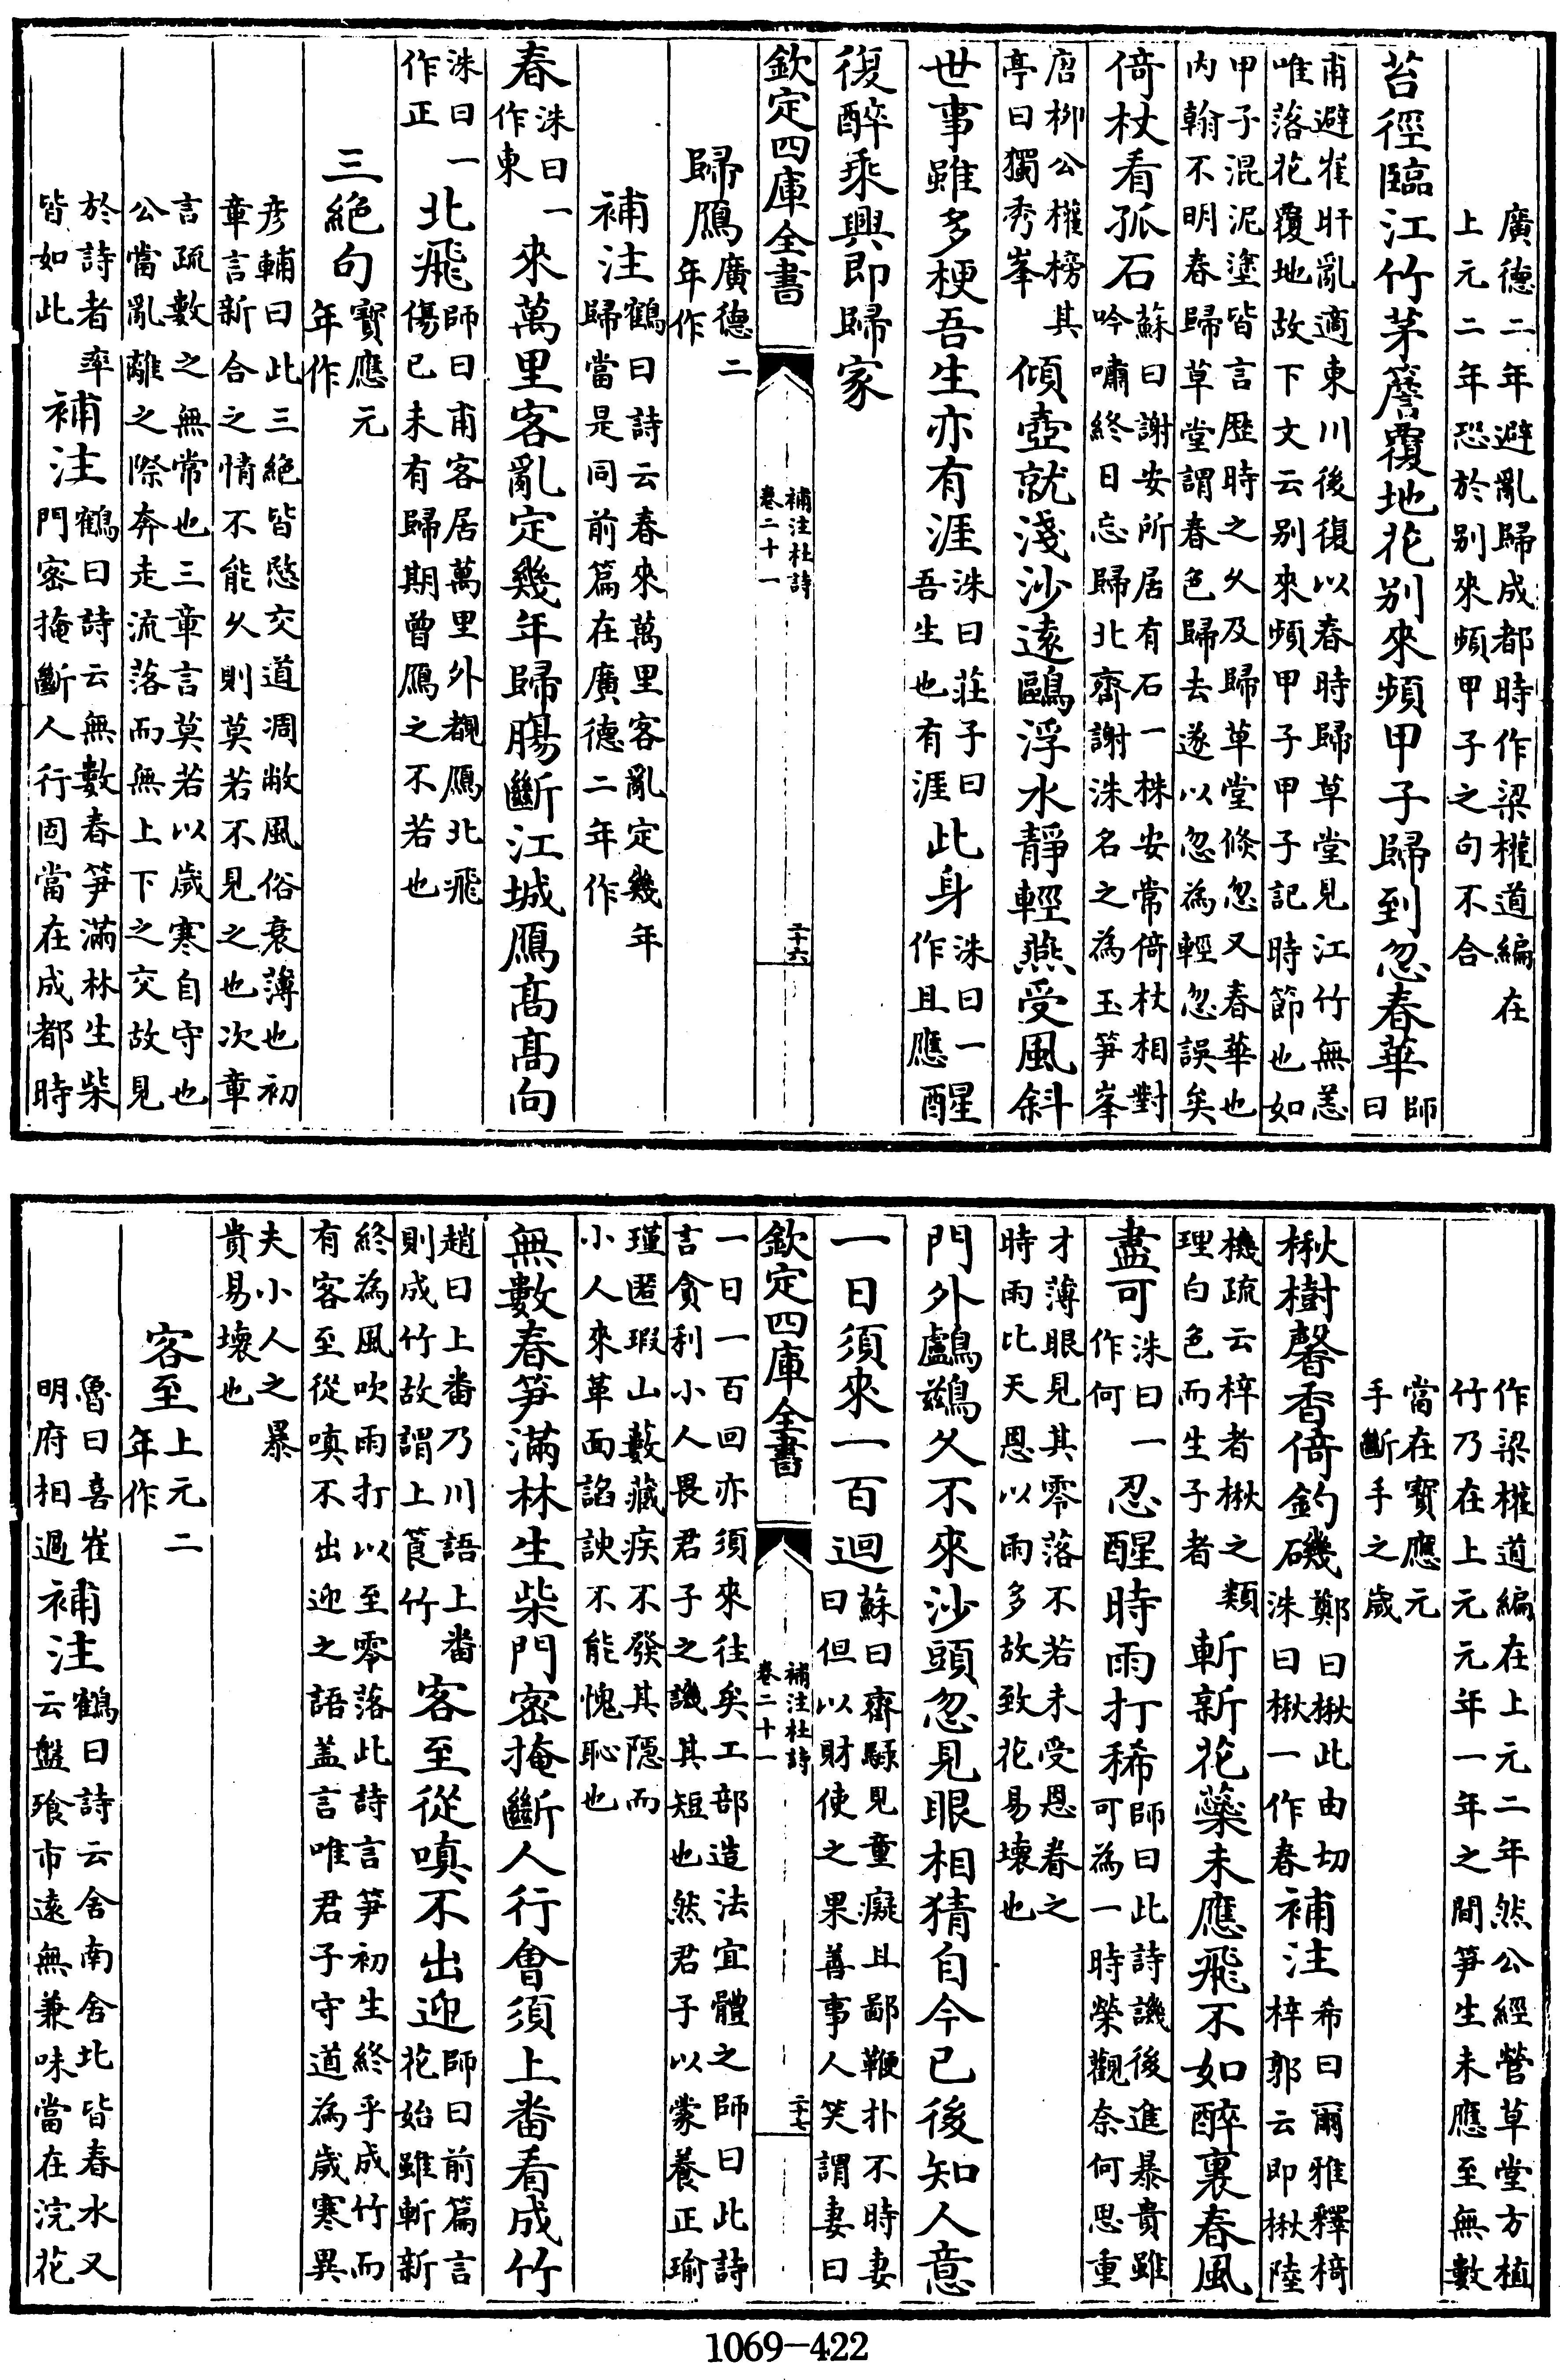 廣德二年避亂歸成都時作梁權道編在
上元二年恐於别來頻甲子之句不合
苔徑臨江竹茅簷覆地花别來頻甲子歸到忽春華師曰
甫避崔旰亂適東川後復以春時歸草堂見江竹無恙
唯落花覆地故下文云别來頻甲子甲子記時節也如
甲子混泥塗皆言歴時之乆及歸草堂倐忽又春華也
内翰不明春歸草堂謂春色歸去遂以忽為輕忽誤矣
倚杖看孤石蘇曰謝安所居有石一株安常倚杖相對
吟嘯終日忘歸北齊謝洙名之為玉笋峯
唐柳公權榜其
亭曰獨秀峯
傾壺就淺沙遠鷗浮水靜輕燕受風斜
世事雖多梗吾生亦有涯洙曰莊子曰
吾生也有涯
此身洙曰一
作且應
醒
復醉乘興即歸家
欽定四庫全書
補注杜詩
卷二十一
二十六
歸鴈廣德二
年作
補注鶴曰詩云春來萬里客亂定幾年
歸當是同前篇在廣德二年作
春洙曰一
作東
來萬里客亂定幾年歸腸斷江城鴈髙髙向
洙曰一
作正
北飛師曰甫客居萬里外覩鴈北飛
傷已未有歸期曾鴈之不若也
三絶句寳應元
年作
彦輔曰此三絶皆愍交道凋敝風俗衰薄也初
章言新合之情不能乆則莫若不見之也次章
言疏數之無常也三章言莫若以歲寒自守也
公當亂離之際奔走流落而無上下之交故見
於詩者率
皆如此
補注鶴曰詩云無數春笋滿林生柴
門密掩斷人行固當在成都時
作梁權道編在上元二年然公經營草堂方植
竹乃在上元元年一年之間笋生未應至無數
當在寳應元
手斷手之歲
楸樹馨香倚釣磯鄭曰楸此由切
洙曰楸一作春
補注希曰爾雅釋椅
梓郭云即楸陸
機疏云梓者楸之類
理白色而生子者
斬新花藥未應飛不如醉裏春風
盡可洙曰一
作何
忍醒時雨打稀師曰此詩譏後進暴貴雖
可為一時榮觀奈何恩重
才薄眼見其零落不若未受恩眷之
時雨比天恩以雨多故致花易壞也
門外鸕鷀乆不來沙頭忽見眼相猜自今已後知人意
一日須來一百迴蘇曰齊騄見童癡且鄙鞭扑不時妻
曰但以財使之果善事人笑謂妻曰
欽定四庫全書
補注杜詩
卷二十一
二十七
一日一百回亦須來往矣工部造法宜體之師曰此詩
言貪利小人畏君子之譏其短也然君子以蒙養正瑜
瑾匿瑕山藪藏疾不發其隠而
小人來革面諂諛不能愧恥也
無數春笋滿林生柴門密掩斷人行㑹須上番看成竹
趙曰上番乃川語上番
則成竹故謂上筤竹
客至從嗔不出迎師曰前篇言
花始雖斬新
終為風吹雨打以至零落此詩言笋初生終乎成竹而
有客至從嗔不出迎之語蓋言唯君子守道為歲寒異
夫小人之暴
貴易壞也
客至上元二
年作
魯曰喜崔
明府相過
補注鶴曰詩云舍南舍北皆春水又
云盤飱市遠無兼味當在浣花
1069-422